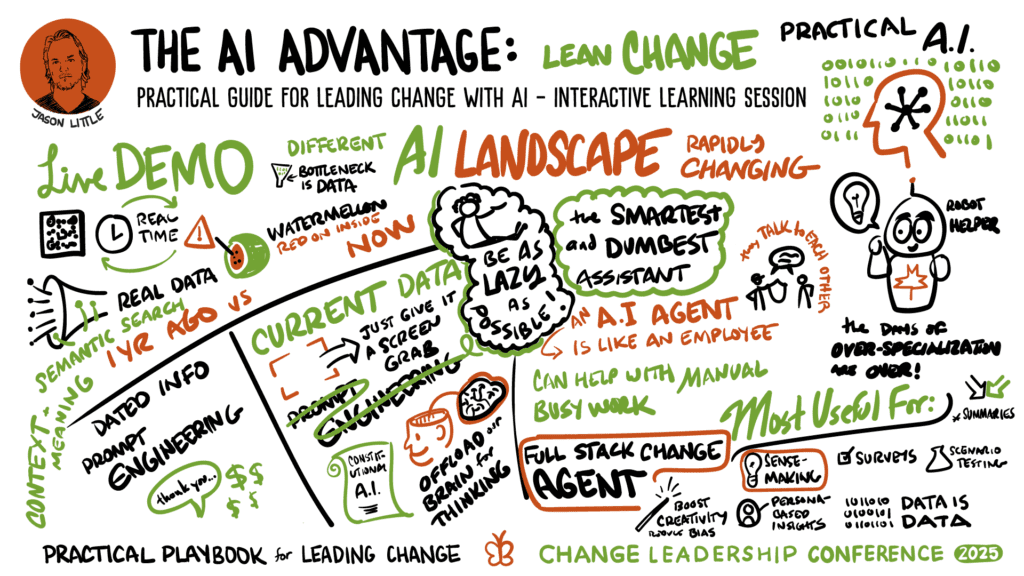 THE AI ADVANTAGE:
LEAN CHANGE
PRACTICAL A.I.
PRACTICAL GUIDE FOR LEADING CHANGE WITH AI - INTERACTIVE LEARNING SESSION
JASON LITTLE
01011
01011
1010
1010
0110
01011
01110
Live DEMO
DIFFERENT
BOTTLENECK
IS DATA
AI LANDSCAPE
RAPIDLY
CHANGING
REAL
TIME
WATERMELLON
RED ON INSIDE
NOW
REAL DATA
SEMANTIC SEARCH
1 YR AGO VS
CONTEXT - MEANING
DATED INFO
PROMPT
ENGINEERING
thank you...
$$
$$
CURRENT DATA
JUST GIVE IT
A SCREEN
GRAB
PROMPT
ENGINEERING
CONSTIT-
UTIONAL
A.I.
OFFLOAD our
BRAIN for
THINKING
BE AS
LAZY
AS
POSSIBLE!
the SMARTEST
and DUMBEST
ASSISTANT
they TALK to EACH OTHER
ROBOT
HELPER
AN A.I AGENT
IS LIKE AN EMPLOYEE
the DAYS OF
OVER-SPECIALIZATION
ARE OVER!
CAN HELP WITH MANUAL
BUSY WORK
FULL STACK CHANGE
AGENT
BOOST
CREATIVITY
REDUCE BIAS
Most Useful For:
* SUMMARIES
SENSE-
MAKING
SURVEYS
SCENARIO
TESTING
PERSONA-
BASED
INSIGHTS
1011010
0110101
DATA IS
DATA
PRACTICAL PLAYBOOK for LEADING CHANGE
CHANGE LEADERSHIP CONFERENCE 2025